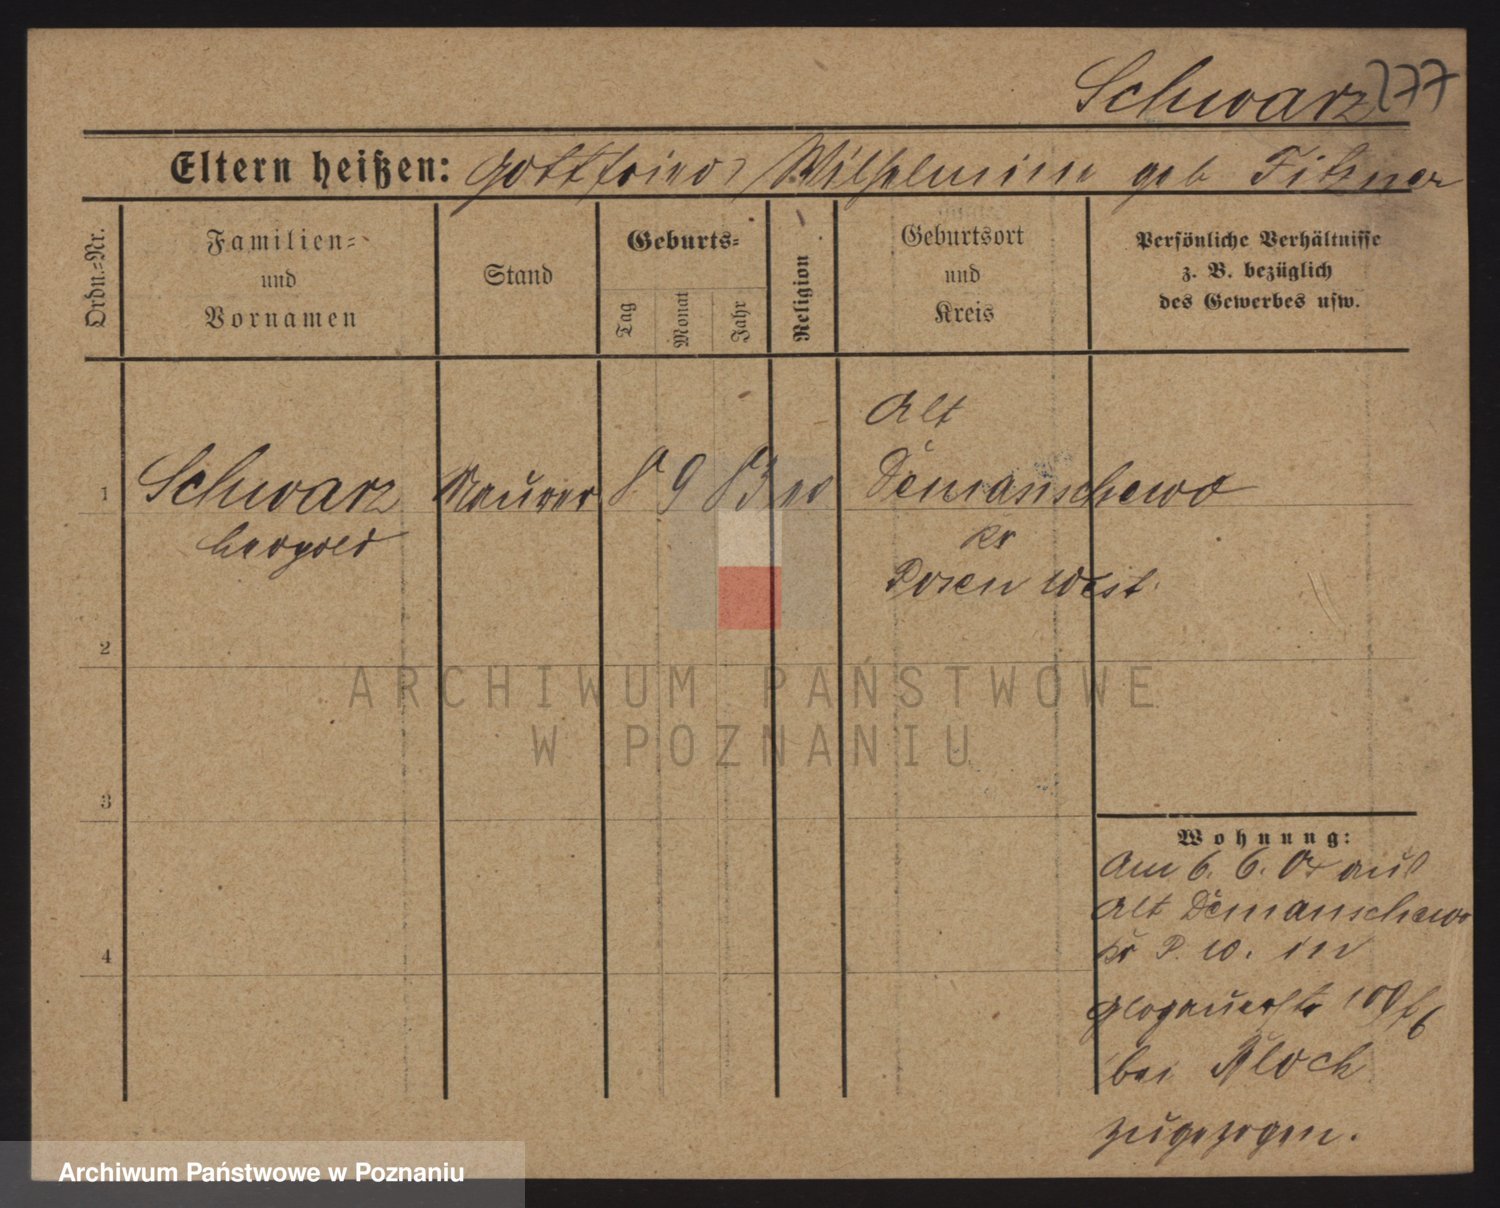 Schwarz 277
Eltern heißen: Gottfried / Wilhelmine geb Fitzner
Ordn.=Nr.
Familien=
und
Vornamen
Stand
Geburts=
Tag
Monat
Jahr
Religion
Geburtsort
und
Kreis
Persönliche Verhältnisse
z. B. bezüglich
des Gewerbes usw.
1 Schwarz Maurer 8 9 83 ev
Leopold
Alt
Demanschewo
Kr
Posen West.
2
3
4
Wohnung:
Am 6. 6. aus
Alt Demanschewo
Kr P. W. in
Glogauerstr
bei Bloch
zugezogen.
ARCHIWUM PAŃSTWOWE
W POZNANIU
Archiwum Państwowe w Poznaniu